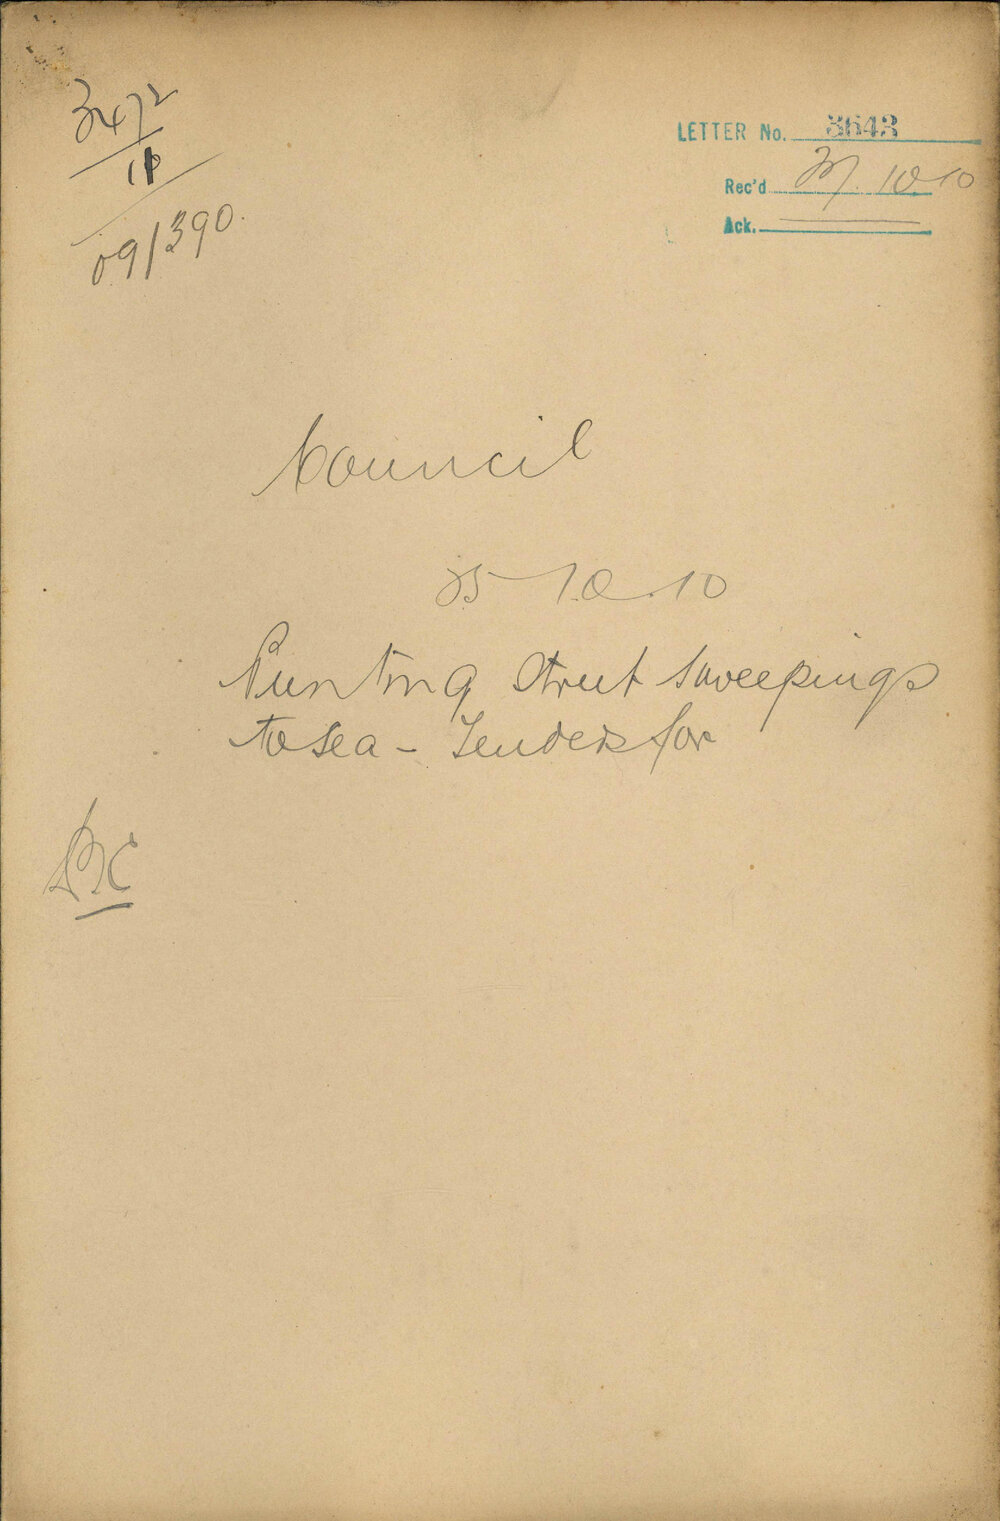 3472
10
09/390.
LETTER No. 3643
Rec'd 27. 10 10
Ack.
Council
25 10.10
Punting Street Sweepings
to sea - Tenders for